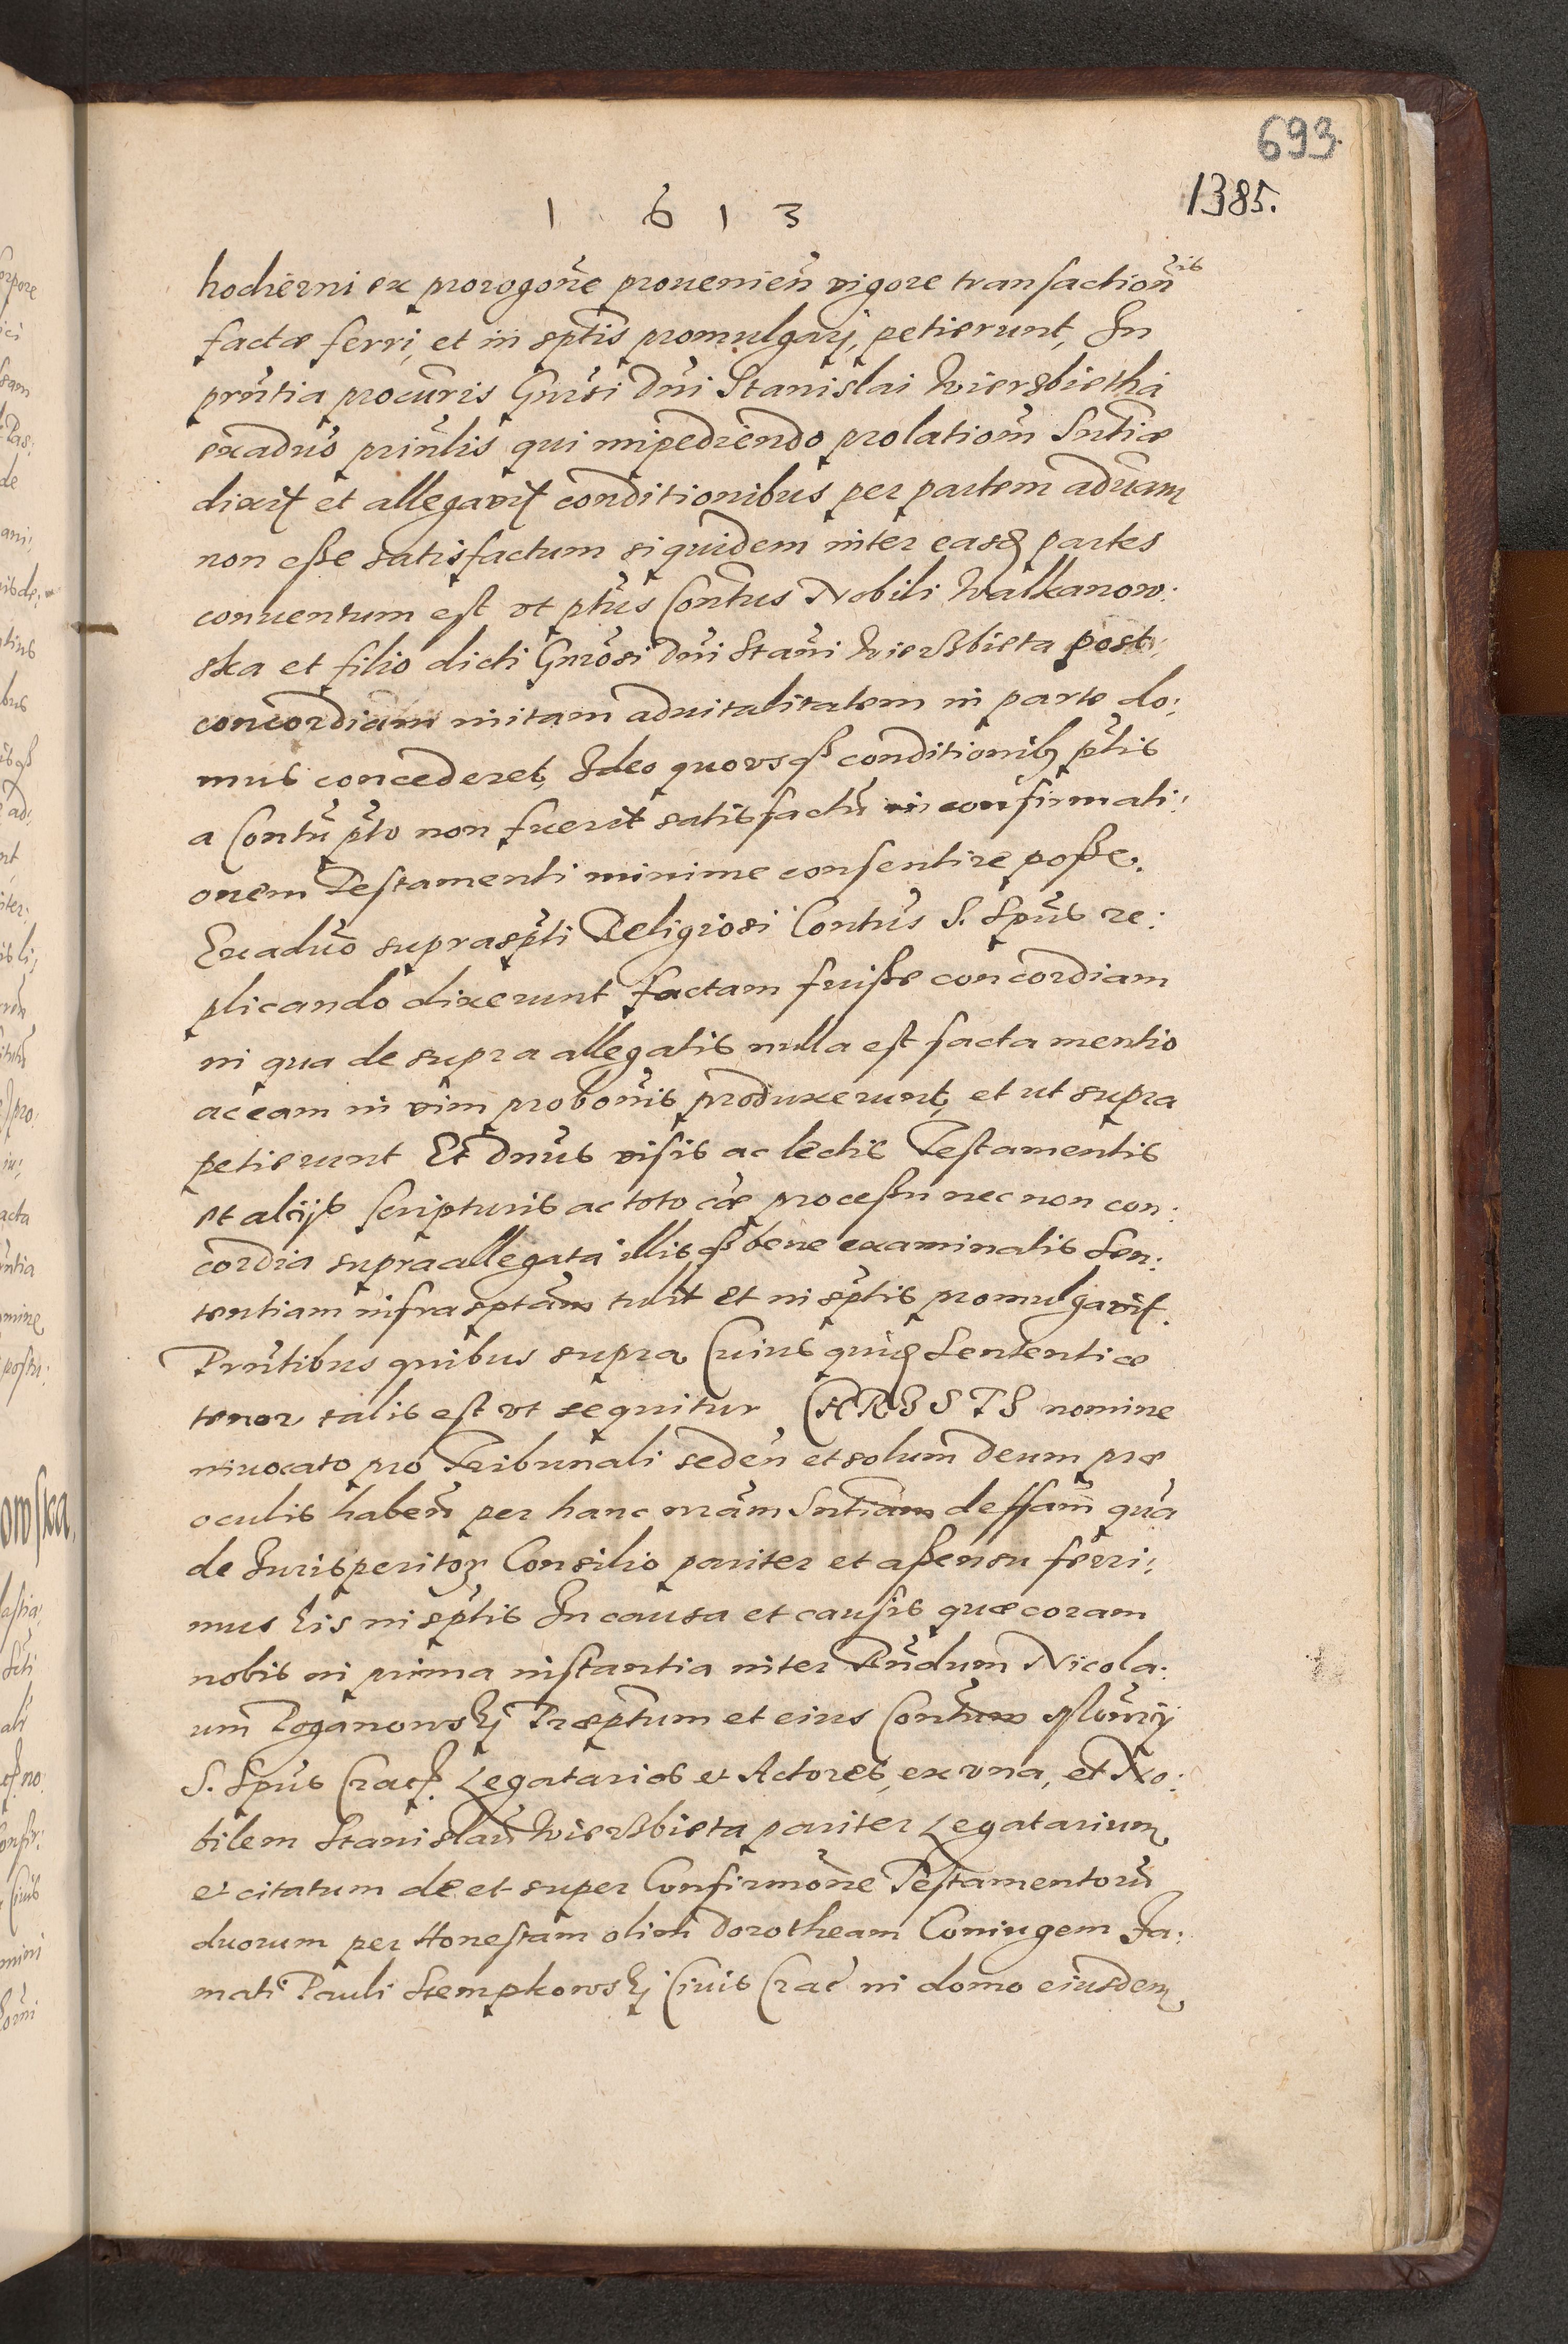 693.
1385.
1 6 1 3
hodierni ex prorogõne provenien̄ vigore transaction̄is
factæ ferri, et in sptis promulgarj, petierunt, In
prn̄tia procuris Gnrsi Dni Stanislai Wierzbietha
exaduo prinlis qui impediendo prolationem Sntiæ
dixit et allegavit conditionibus per partem aduam
non esse satisfactum siquidem inter easdē partes
conuentum est vt ptus Contus Nobili Walkanow:
ska et filio dicti Gnrosi Dni Stani Wierzbieta post
concordiam initam aduitalitatem in parte do:
mus concederet, Ideo quousqȝ conditionibȝ ptis
a Contu pto non fuerit satisfactū in confirmati:
onem Testamenti minime consentire posse.
Exaduo suprascpti Religiosi Contus S. Spus re:
plicando dixerunt factam fuisse concordiam
in qua de supra allegatis nulla est facta mentio
ac eam in vim probonis produxerunt, et ut supra
petierunt Et Dnus visis ac lectis Testamentis
et alijs scripturis ac toto cæ processu nec non con:
cordia supraallegata illisqȝ bene examinatis Sen:
tentiam infrasptam tulit et in scptis promulgavit.
Prntibus quibus supra Cuius quidē Sententiæ
tenor talis est vt sequitur CHRISTI nomine
inuocato pro Tribunali seden̄ et solum Deum præ
oculis haben̄ per hanc nram Sntiam deffam qua
de Jurisperitoꝝ Consilio pariter et assensu ferri:
mus his in scptis In causa et causis quæ coram
nobis in prima instantia inter Rndum Nicola:
um Zoganowskj Præptum et eius Contum Mon̄rij
S. Spus Cracȝ. Legatarios et Actores, ex vna, et No:
bilem Stanislaū Wierzbieta pariter Legatarium
et citatum de et super Confirmone Testamentorū
duorum per Honestam olim Dorotheam Coniugem Fa:
mati Pauli Stempkowskj Ciuis Crac̄ in domo eiusdem